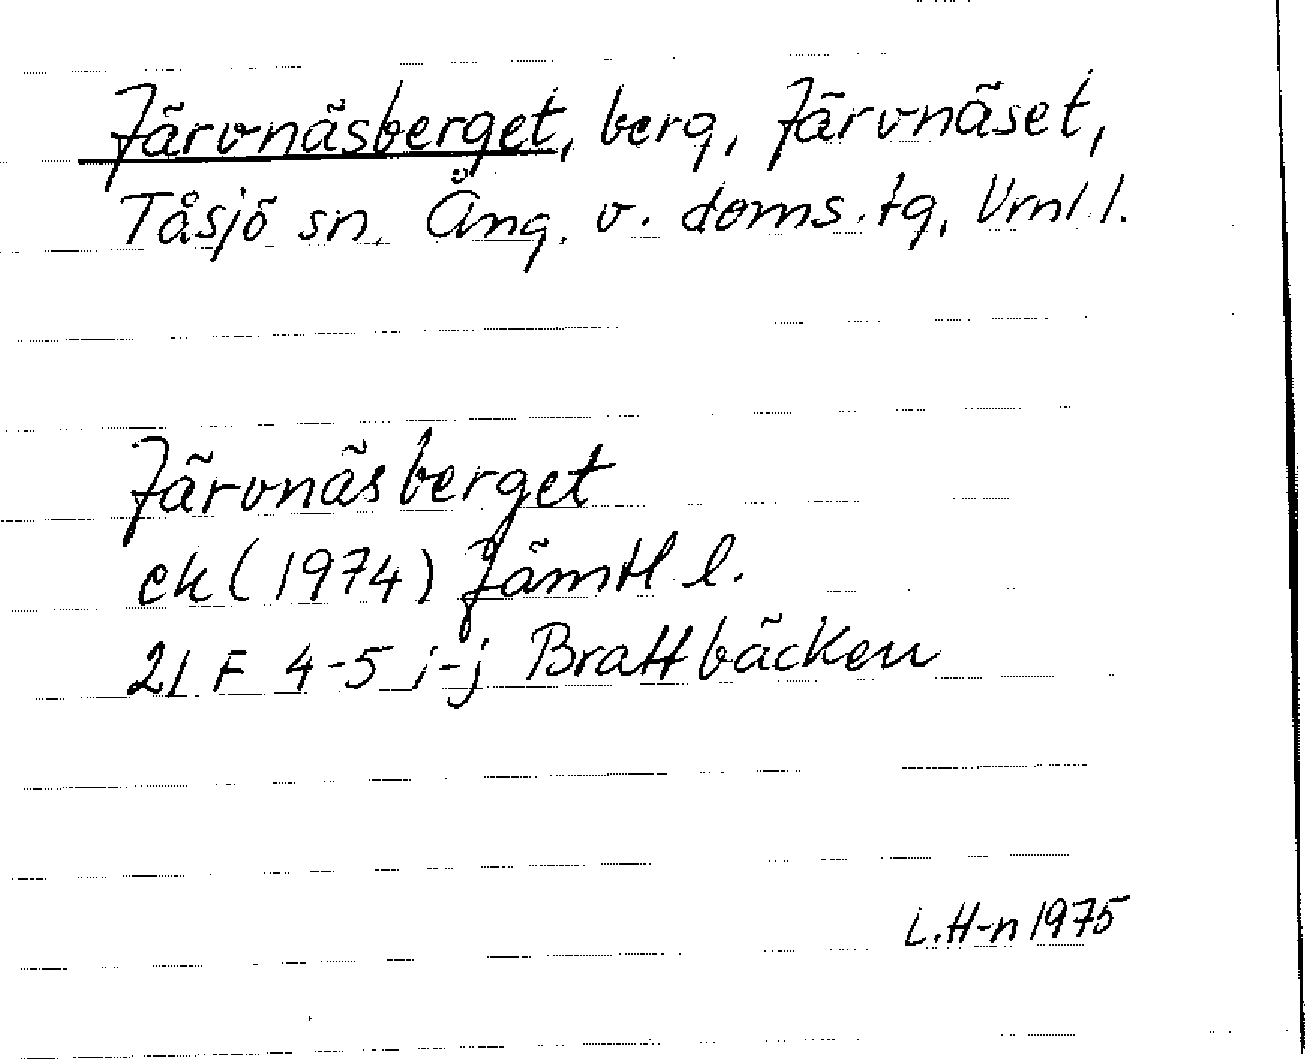 Järvnäsberget, berg, Järvnäset,
Tåsjö sn. Ång. v. doms. tg, Vrnl l.
Järvnäsberget
ek (1974) Jämtl l.
21 F 4-5 i-j Brattbäcken
L.H-n 1975